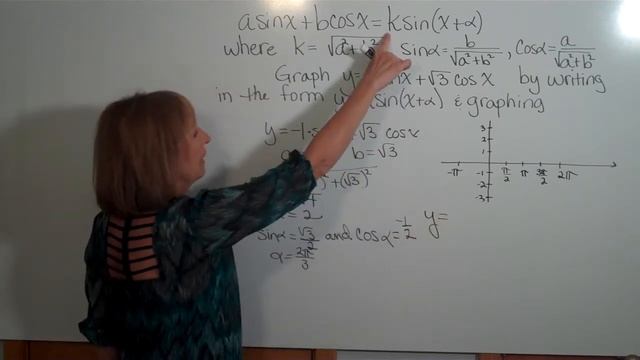 a sinx + b cosx = k sin(x + α)
where k = √a²+b² sinα = b/√a²+b² , cosα = a/√a²+b²
Graph y = sinx + √3 cos x by writing
in the form y sin(x+α) & graphing
y = -1·s √3 cosx
b = √3
+ (√3)²
2
sinα = √3/2 and cosα = -1/2 y =
α = 2π/3
3
2
1
-1
-2
-3
-π π/2 π 3π/2 2π